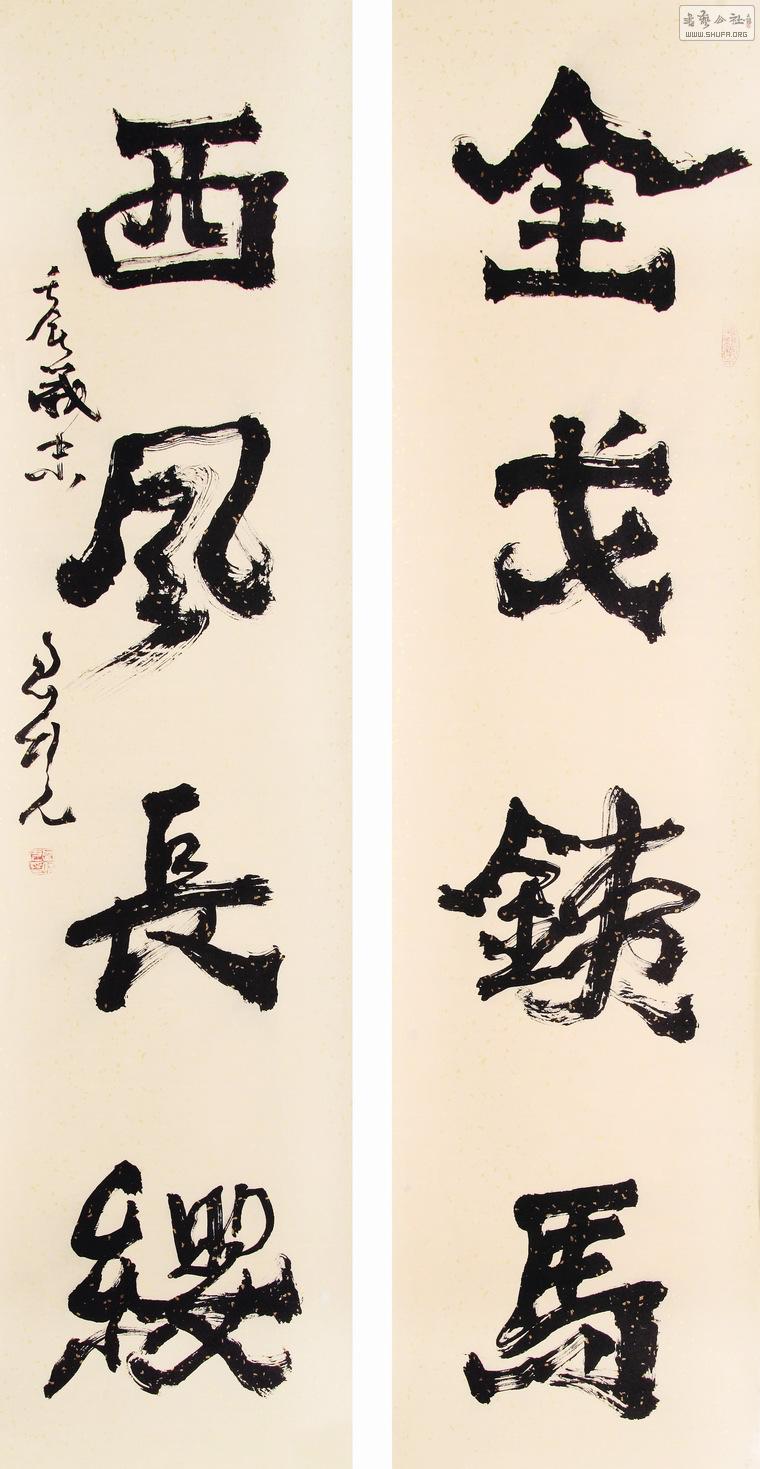 金戈銕馬
西風長纓
壬辰歲末
書藝公社
WWW.SHUFA.ORG